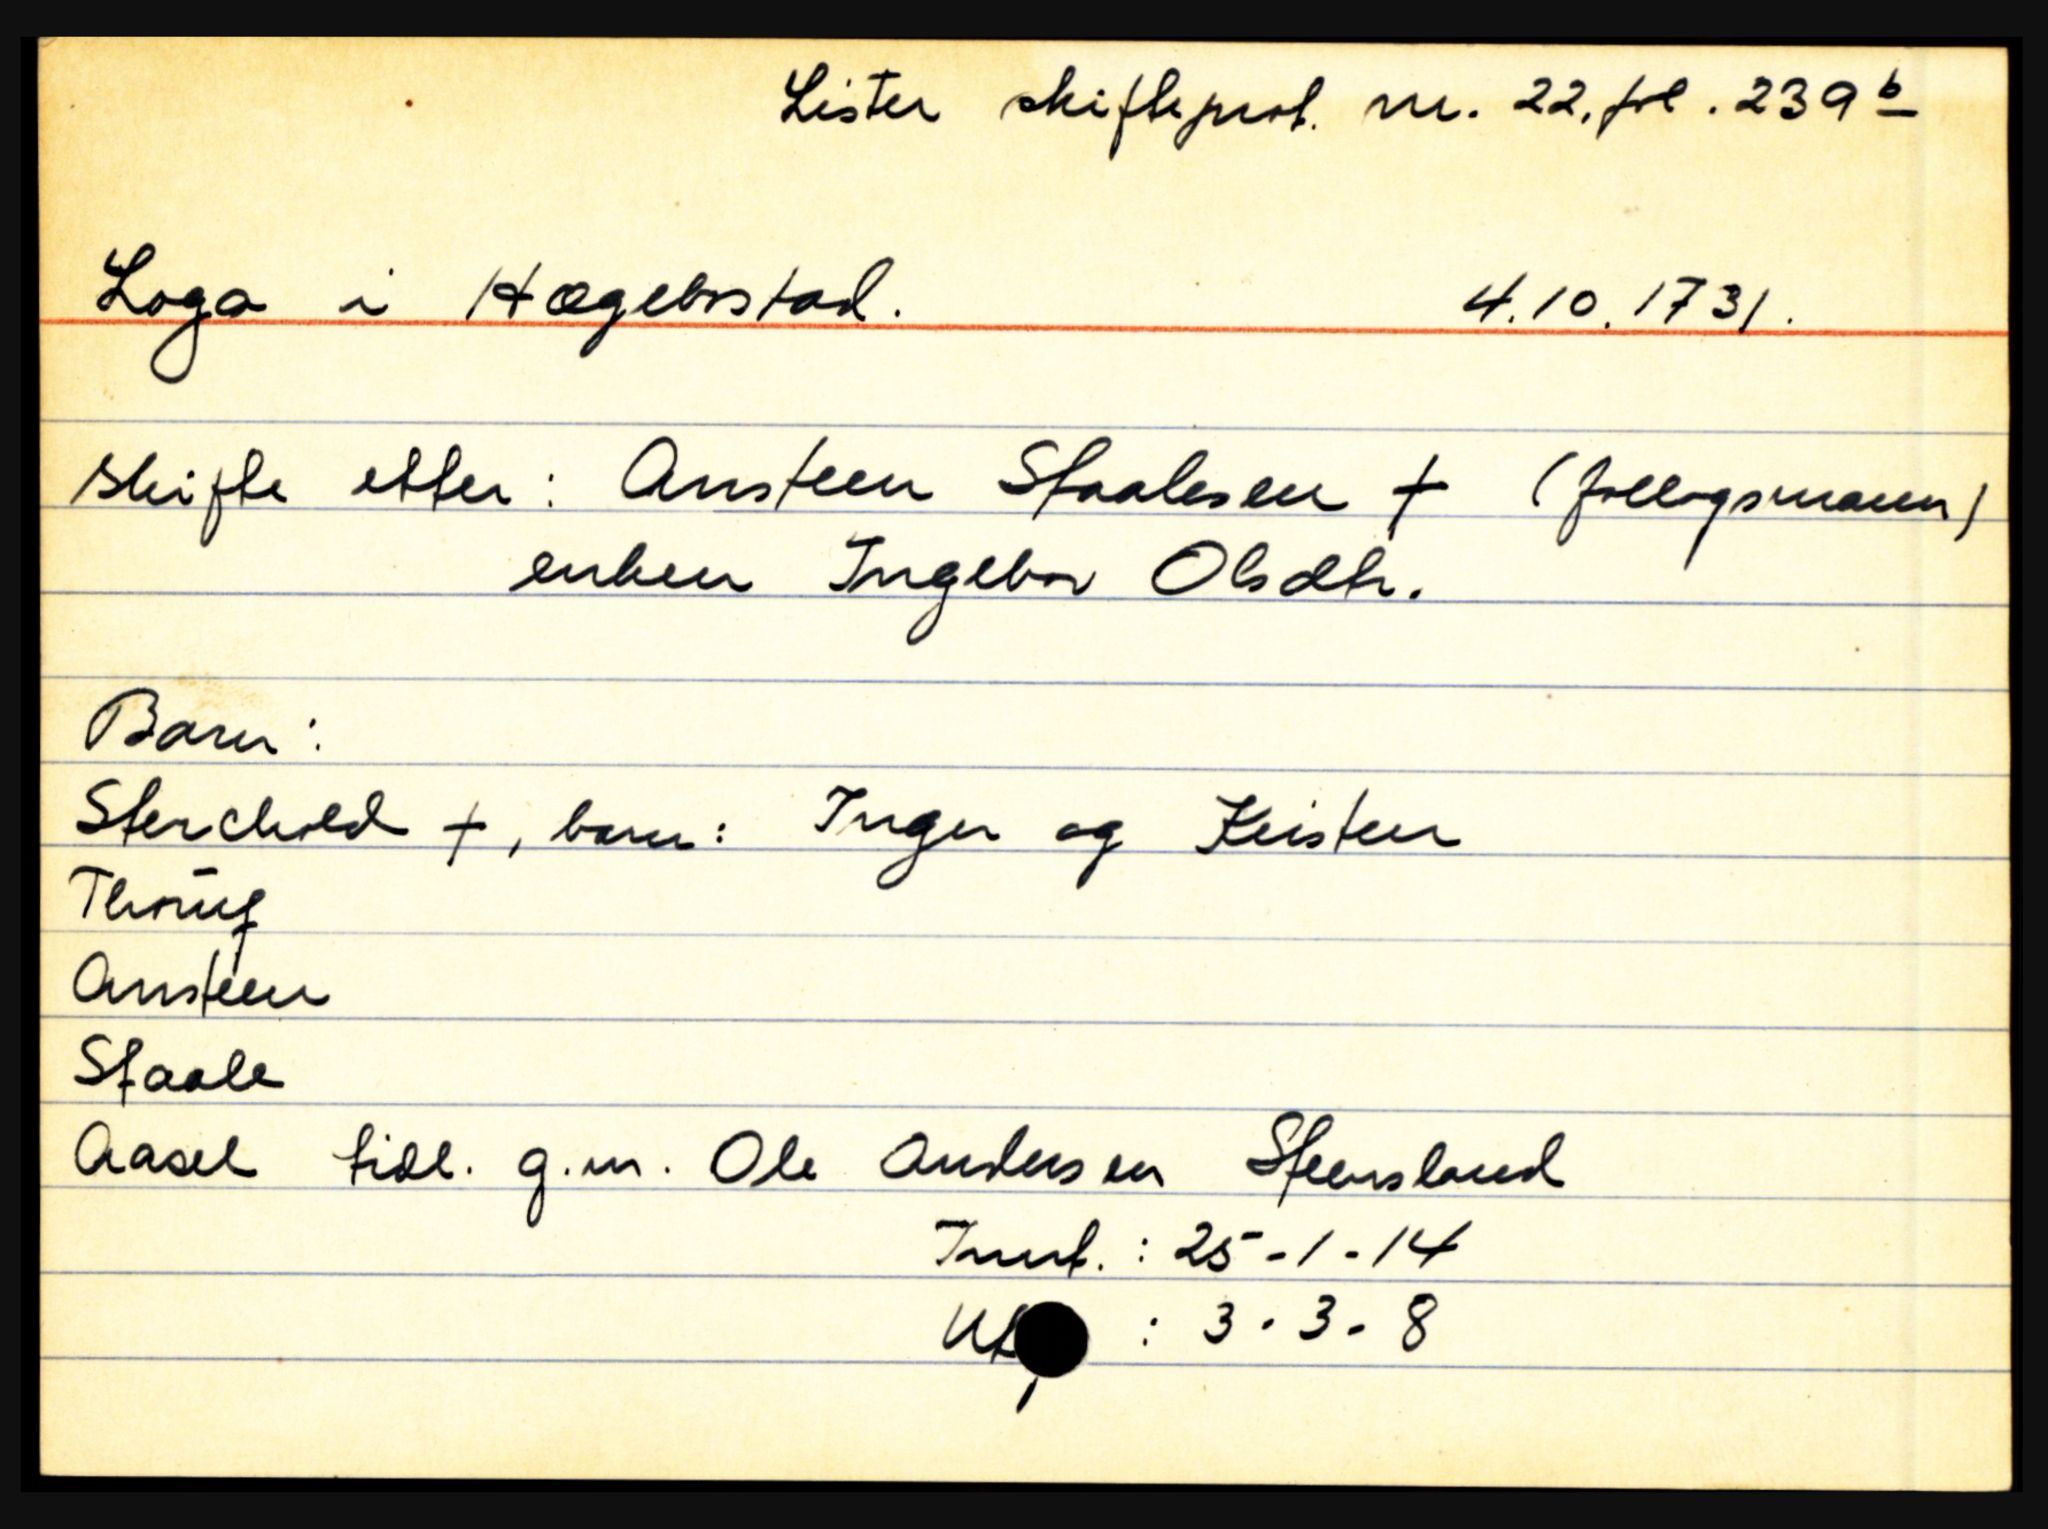 Lister skifteprot. nr. 22, fol. 239 b
Loga i Hægebostad. 4.10.1731.
Skifte etter: Ansteen Staalesen + (follogsmann)
enken Ingebor Olsdtr.
Barn:
Sterchold +, barn: Inger og Kristen
Ansteen
Staale
Aasel tidl. g.m. Ole Andersen Steensland
: 25-1-14
: 3-3-8